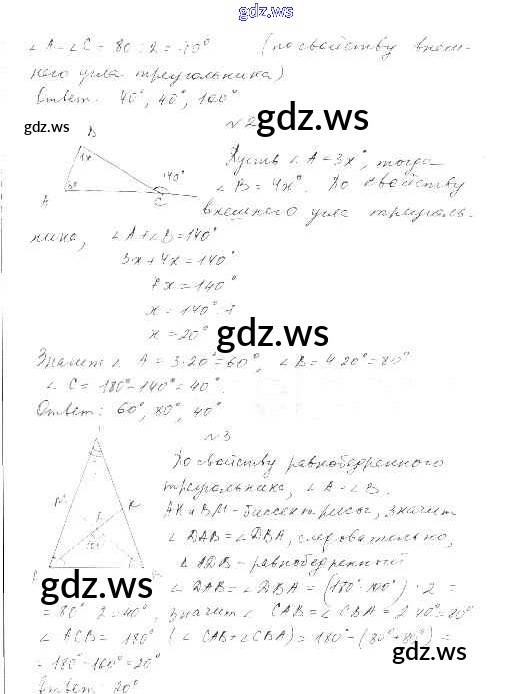 gdz.ws
∠A = ∠C = 80 : 2 = 40° (по свойству внеш-
него угла треугольника)
Ответ: 40°, 40°, 100°
gdz.ws
gdz.ws
№2
B
4x
140°
A
3x°
C
Пусть ∠A = 3x°, тогда
∠B = 4x°. По свойству
внешнего угла треуголь-
ника, ∠A + ∠B = 140°
3x + 4x = 140°
7x = 140°
x = 140° : 7
x = 20°
gdz.ws
Значит ∠A = 3·20° = 60°, ∠B = 4·20° = 80°
∠C = 180° - 140° = 40°.
Ответ: 60°, 80°, 40°
№3
M
K
100°
По свойству равнобедренного
треугольника, ∠A = ∠B.
AK и BM - биссектрисы, значит
∠DAB = ∠DBA, следовательно,
∠ADB - равнобедренный
∠DAB = ∠DBA = (180° - 100°) : 2 =
gdz.ws
= 80° : 2 = 40°, значит ∠CAB = ∠CBA = 2·40° = 80°
gdz.ws
∠ACB = 180° - (∠CAB + ∠CBA) = 180° - (80° + 80°) =
= 180° - 160° = 20°
gdz.ws
Ответ: 20°